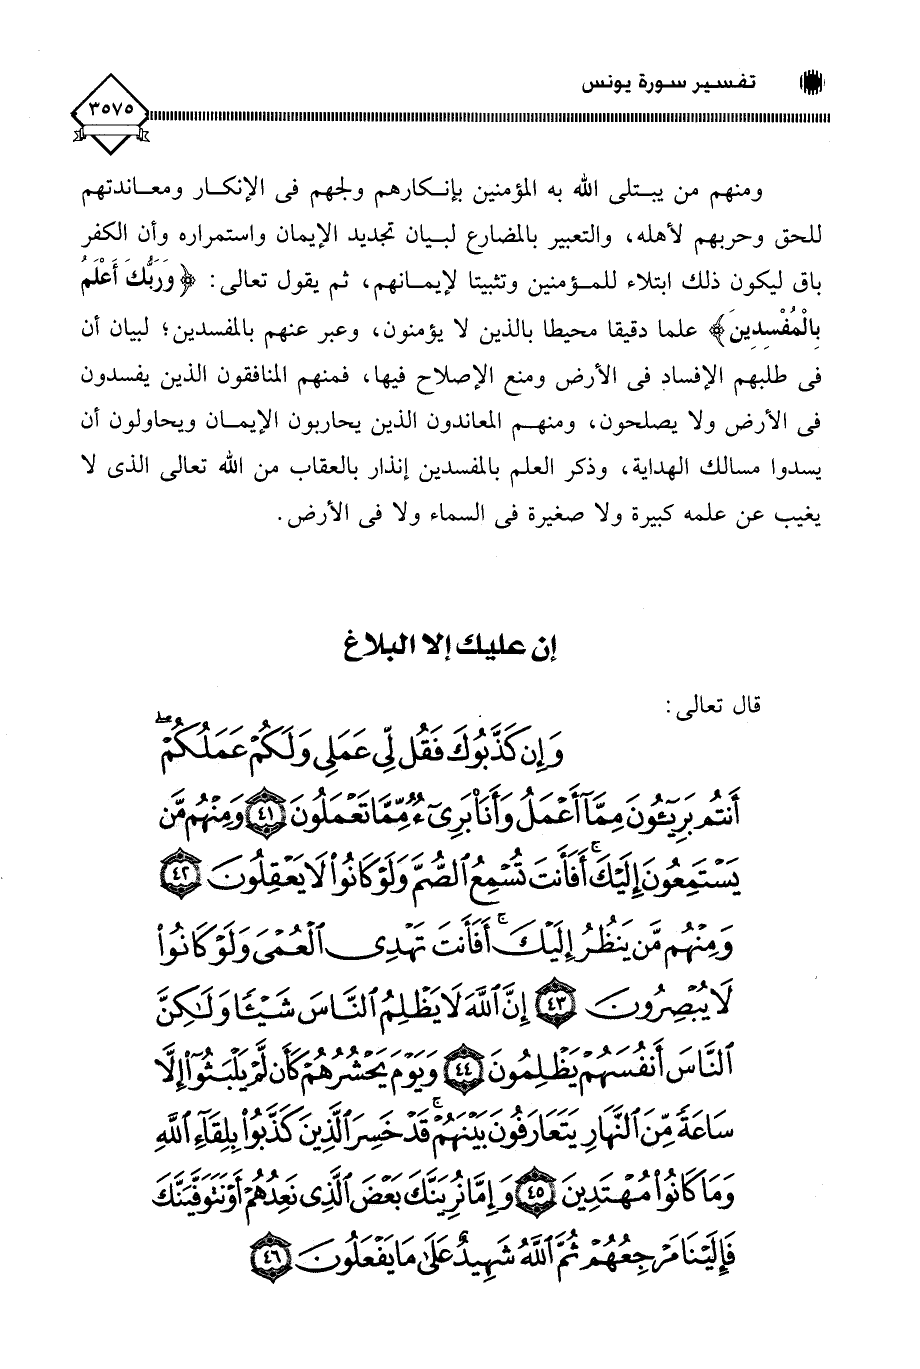 تفسير سورة يونس
٣٥٧٥
ومنهم من يبتلى الله به المؤمنين بإنكارهم ولجهم فى الإنكار ومعاندتهم
للحق وحربهم لأهله، والتعبير بالمضارع لبيان تجديد الإيمان واستمراره وأن الكفر
باق ليكون ذلك ابتلاء للمؤمنين وتثبيتا لإيمانهم، ثم يقول تعالى: ﴿وَرَبُّكَ أَعْلَمُ
بِالْمُفْسِدِينَ﴾ علما دقيقا محيطا بالذين لا يؤمنون، وعبر عنهم بالمفسدين؛ لبيان أن
فى طلبهم الإفساد فى الأرض ومنع الإصلاح فيها، فمنهم المنافقون الذين يفسدون
فى الأرض ولا يصلحون، ومنهم المعاندون الذين يحاربون الإيمان ويحاولون أن
يسدوا مسالك الهداية، وذكر العلم بالمفسدين إنذار بالعقاب من الله تعالى الذى لا
يغيب عن علمه كبيرة ولا صغيرة فى السماء ولا فى الأرض.
إن عليك إلا البلاغ
قال تعالى:
وَإِن كَذَّبُوكَ فَقُل لِّى عَمَلِى وَلَكُمْ عَمَلُكُمْ ۖ
أَنتُم بَرِيٓـُٔونَ مِمَّآ أَعْمَلُ وَأَنَا۠ بَرِىٓءٌ مِّمَّا تَعْمَلُونَ ٤١ وَمِنْهُم مَّن
يَسْتَمِعُونَ إِلَيْكَ ۚ أَفَأَنتَ تُسْمِعُ ٱلصُّمَّ وَلَوْ كَانُوا۟ لَا يَعْقِلُونَ ٤٢
وَمِنْهُم مَّن يَنظُرُ إِلَيْكَ ۚ أَفَأَنتَ تَهْدِى ٱلْعُمْىَ وَلَوْ كَانُوا۟
لَا يُبْصِرُونَ ٤٣ إِنَّ ٱللَّهَ لَا يَظْلِمُ ٱلنَّاسَ شَيْـًٔا وَلَـٰكِنَّ
ٱلنَّاسَ أَنفُسَهُمْ يَظْلِمُونَ ٤٤ وَيَوْمَ يَحْشُرُهُمْ كَأَن لَّمْ يَلْبَثُوٓا۟ إِلَّا
سَاعَةً مِّنَ ٱلنَّهَارِ يَتَعَارَفُونَ بَيْنَهُمْ ۚ قَدْ خَسِرَ ٱلَّذِينَ كَذَّبُوا۟ بِلِقَآءِ ٱللَّهِ
وَمَا كَانُوا۟ مُهْتَدِينَ ٤٥ وَإِمَّا نُرِيَنَّكَ بَعْضَ ٱلَّذِى نَعِدُهُمْ أَوْ نَتَوَفَّيَنَّكَ
فَإِلَيْنَا مَرْجِعُهُمْ ثُمَّ ٱللَّهُ شَهِيدٌ عَلَىٰ مَا يَفْعَلُونَ ٤٦